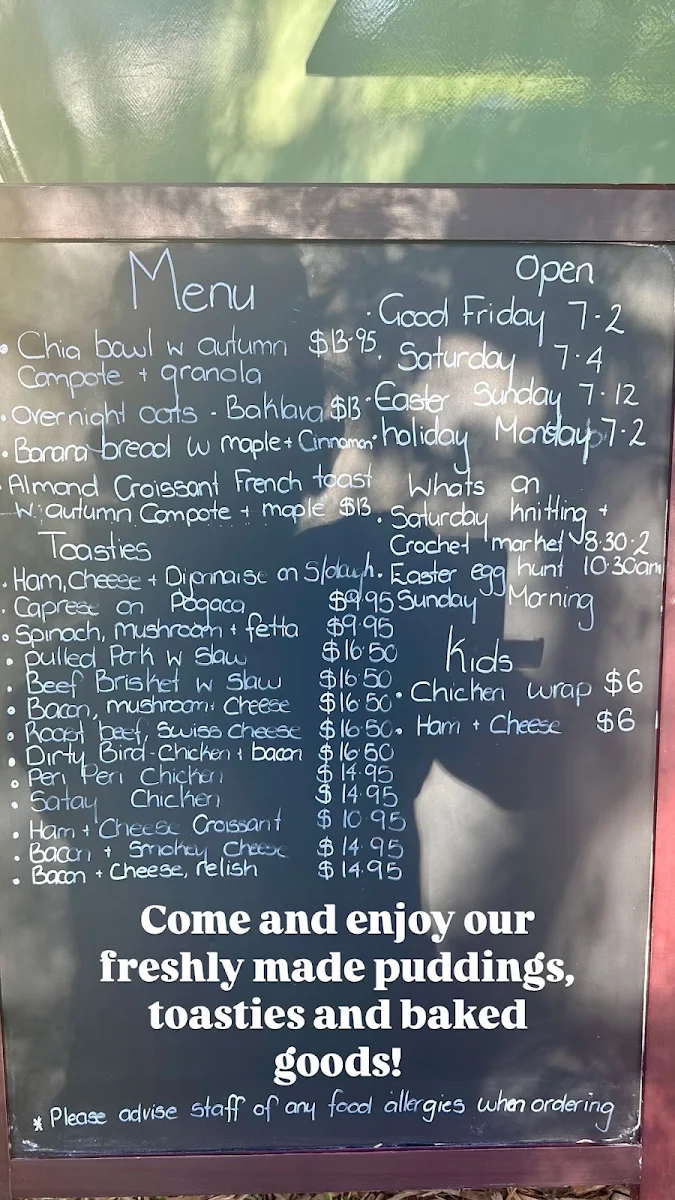 Menu
• Chia bowl w autumn $13.95
Compote + granola
• Overnight oats - Baklava $13
• Banana bread w maple + Cinnamon
• Almond Croissant French toast
w: autumn Compote + maple $13
Toasties
• Ham, Cheese + Dijonnaise on S/dough
• Caprese on Pogaca $9.95
• Spinach, mushroom + fetta $9.95
• pulled Pork w Slaw $16.50
• Beef Brisket w Slaw $16.50
• Bacon, mushroom + Cheese $16.50
• Roast beef, Swiss cheese $16.50
• Dirty Bird-Chicken + bacon $16.50
• Peri Peri Chicken $14.95
• Satay Chicken $14.95
• Ham + Cheese Croissant $10.95
• Bacon + Smokey Cheese $14.95
• Bacon + Cheese, relish $14.95
Open
• Good Friday 7-2
• Saturday 7-4
• Easter Sunday 7-12
• holiday Monday 7-2
Whats on
• Saturday knitting +
Crochet market 8.30-2
• Easter egg hunt 10.30am
Sunday Morning
Kids
• Chicken wrap $6
• Ham + Cheese $6
Come and enjoy our
freshly made puddings,
toasties and baked
goods!
* Please advise staff of any food allergies when ordering